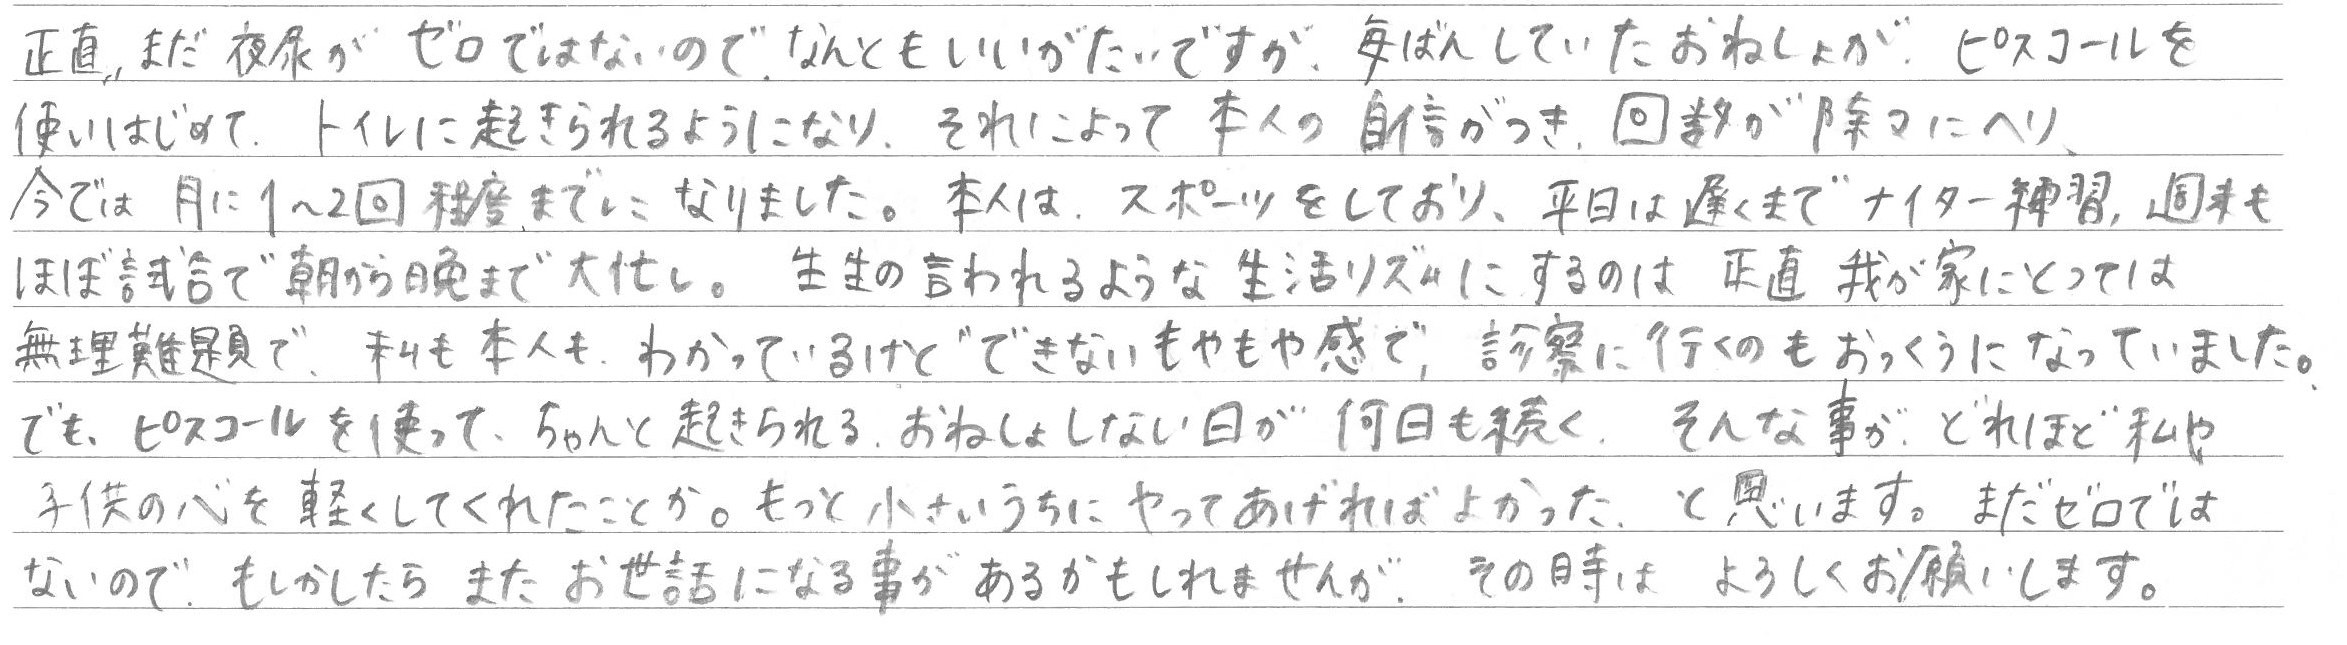 正直、まだ夜尿がゼロではないので、なんともいいがたいですが、毎ばんしていたおねしょが、ピスコールを
使いはじめて、トイレに起きられるようになり、それによって本人の自信がつき、回数が除々にへり、
今では月に1~2回程度までになりました。本人は、スポーツをしており、平日は遅くまでナイター練習、週末も
ほぼ試合で朝から晩まで大忙し。先生の言われるような生活リズムにするのは正直我が家にとっては
無理難題で、私も本人も、わかっているけどできないもやもや感で、診察に行くのもおっくうになっていました。
でも、ピスコールを使って、ちゃんと起きられる、おねしょしない日が何日も続く、そんな事が、どれほど私や
子供の心を軽くしてくれたことか。もっと小さいうちにやってあげればよかった、と思います。まだゼロでは
ないので、もしかしたらまたお世話になる事があるかもしれませんが、その時はよろしくお願いします。